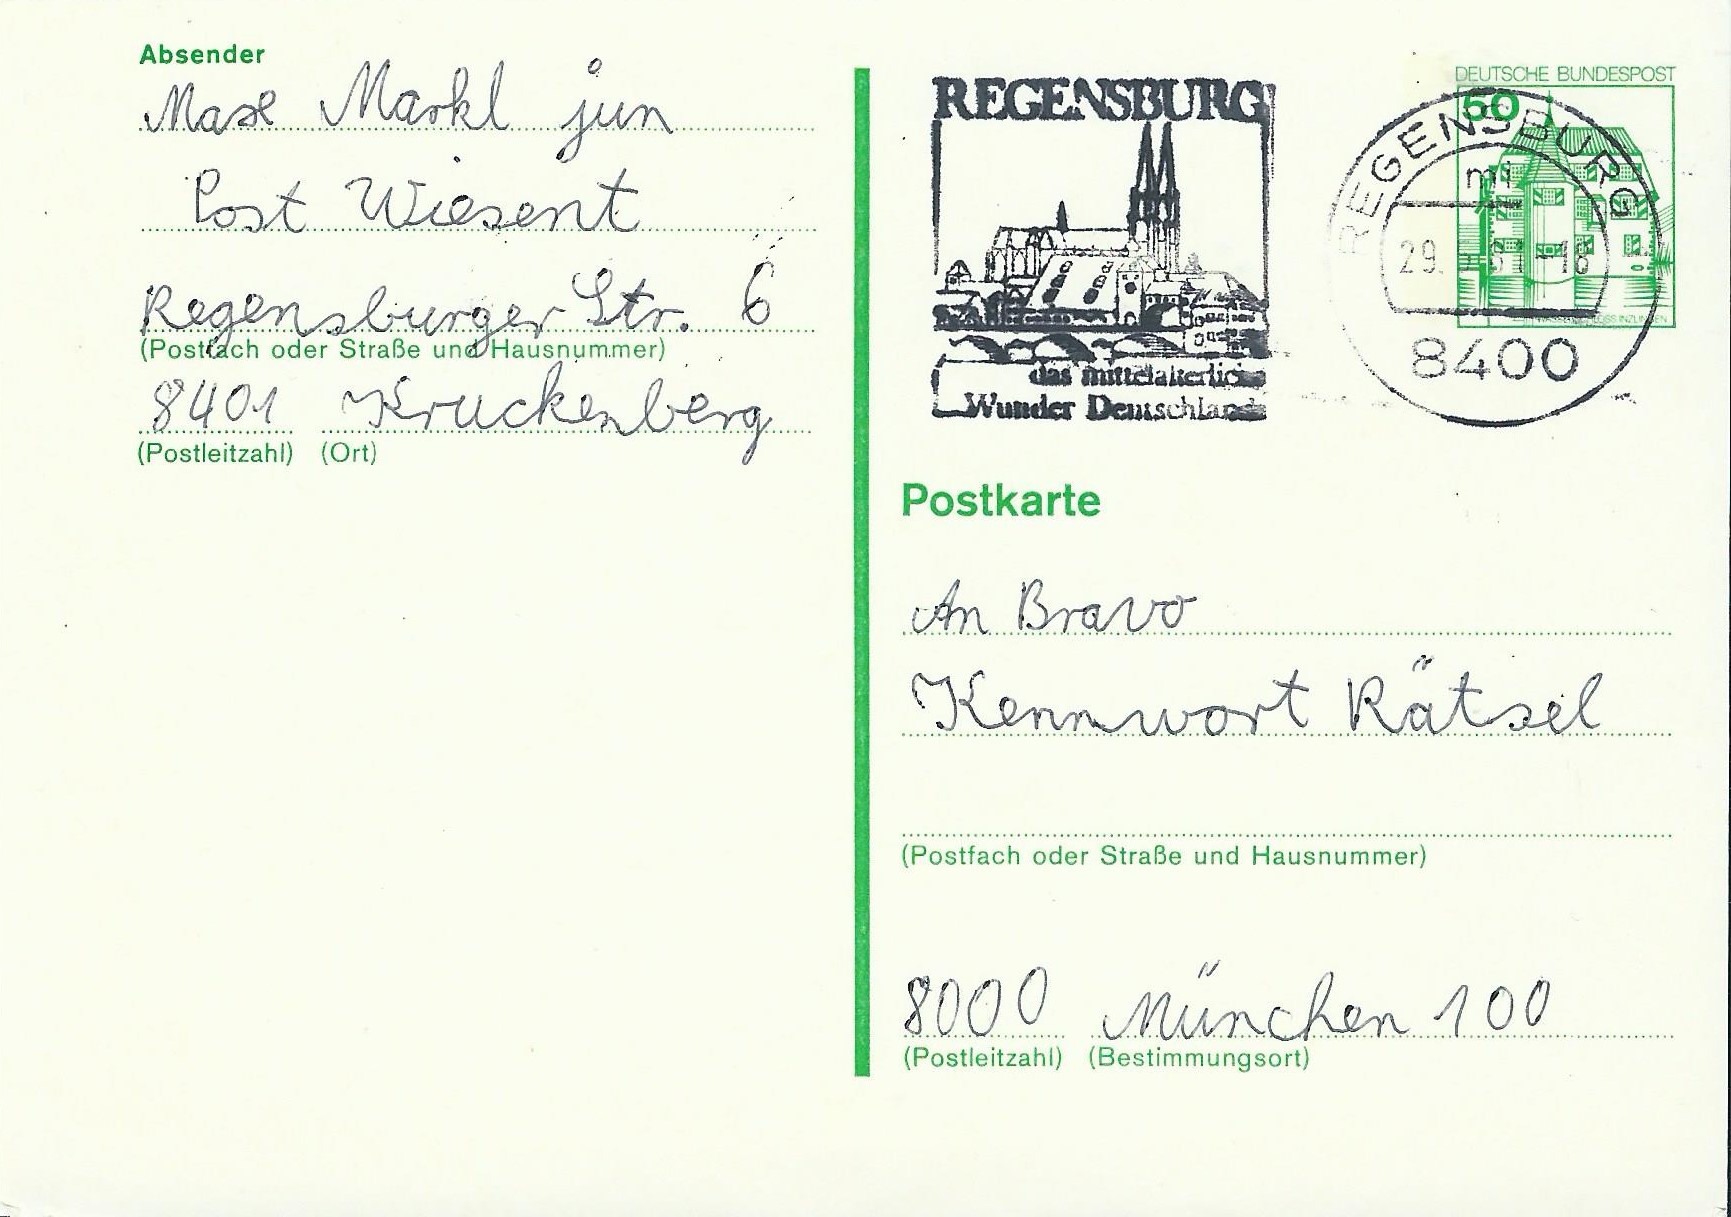 Absender
Max Markl jun
Post Wiesent
Regensburger Str. 6
(Postfach oder Straße und Hausnummer)
8401 Kruckenberg
(Postleitzahl) (Ort)
REGENSBURG
das mittelalterliche
Wunder Deutschlands
DEUTSCHE BUNDESPOST
50
REGENSBURG
mi
29. 81-18
8400
WASSERSCHLOSS INZLINGEN
Postkarte
An Bravo
Kennwort Rätsel
(Postfach oder Straße und Hausnummer)
8000 München 100
(Postleitzahl) (Bestimmungsort)